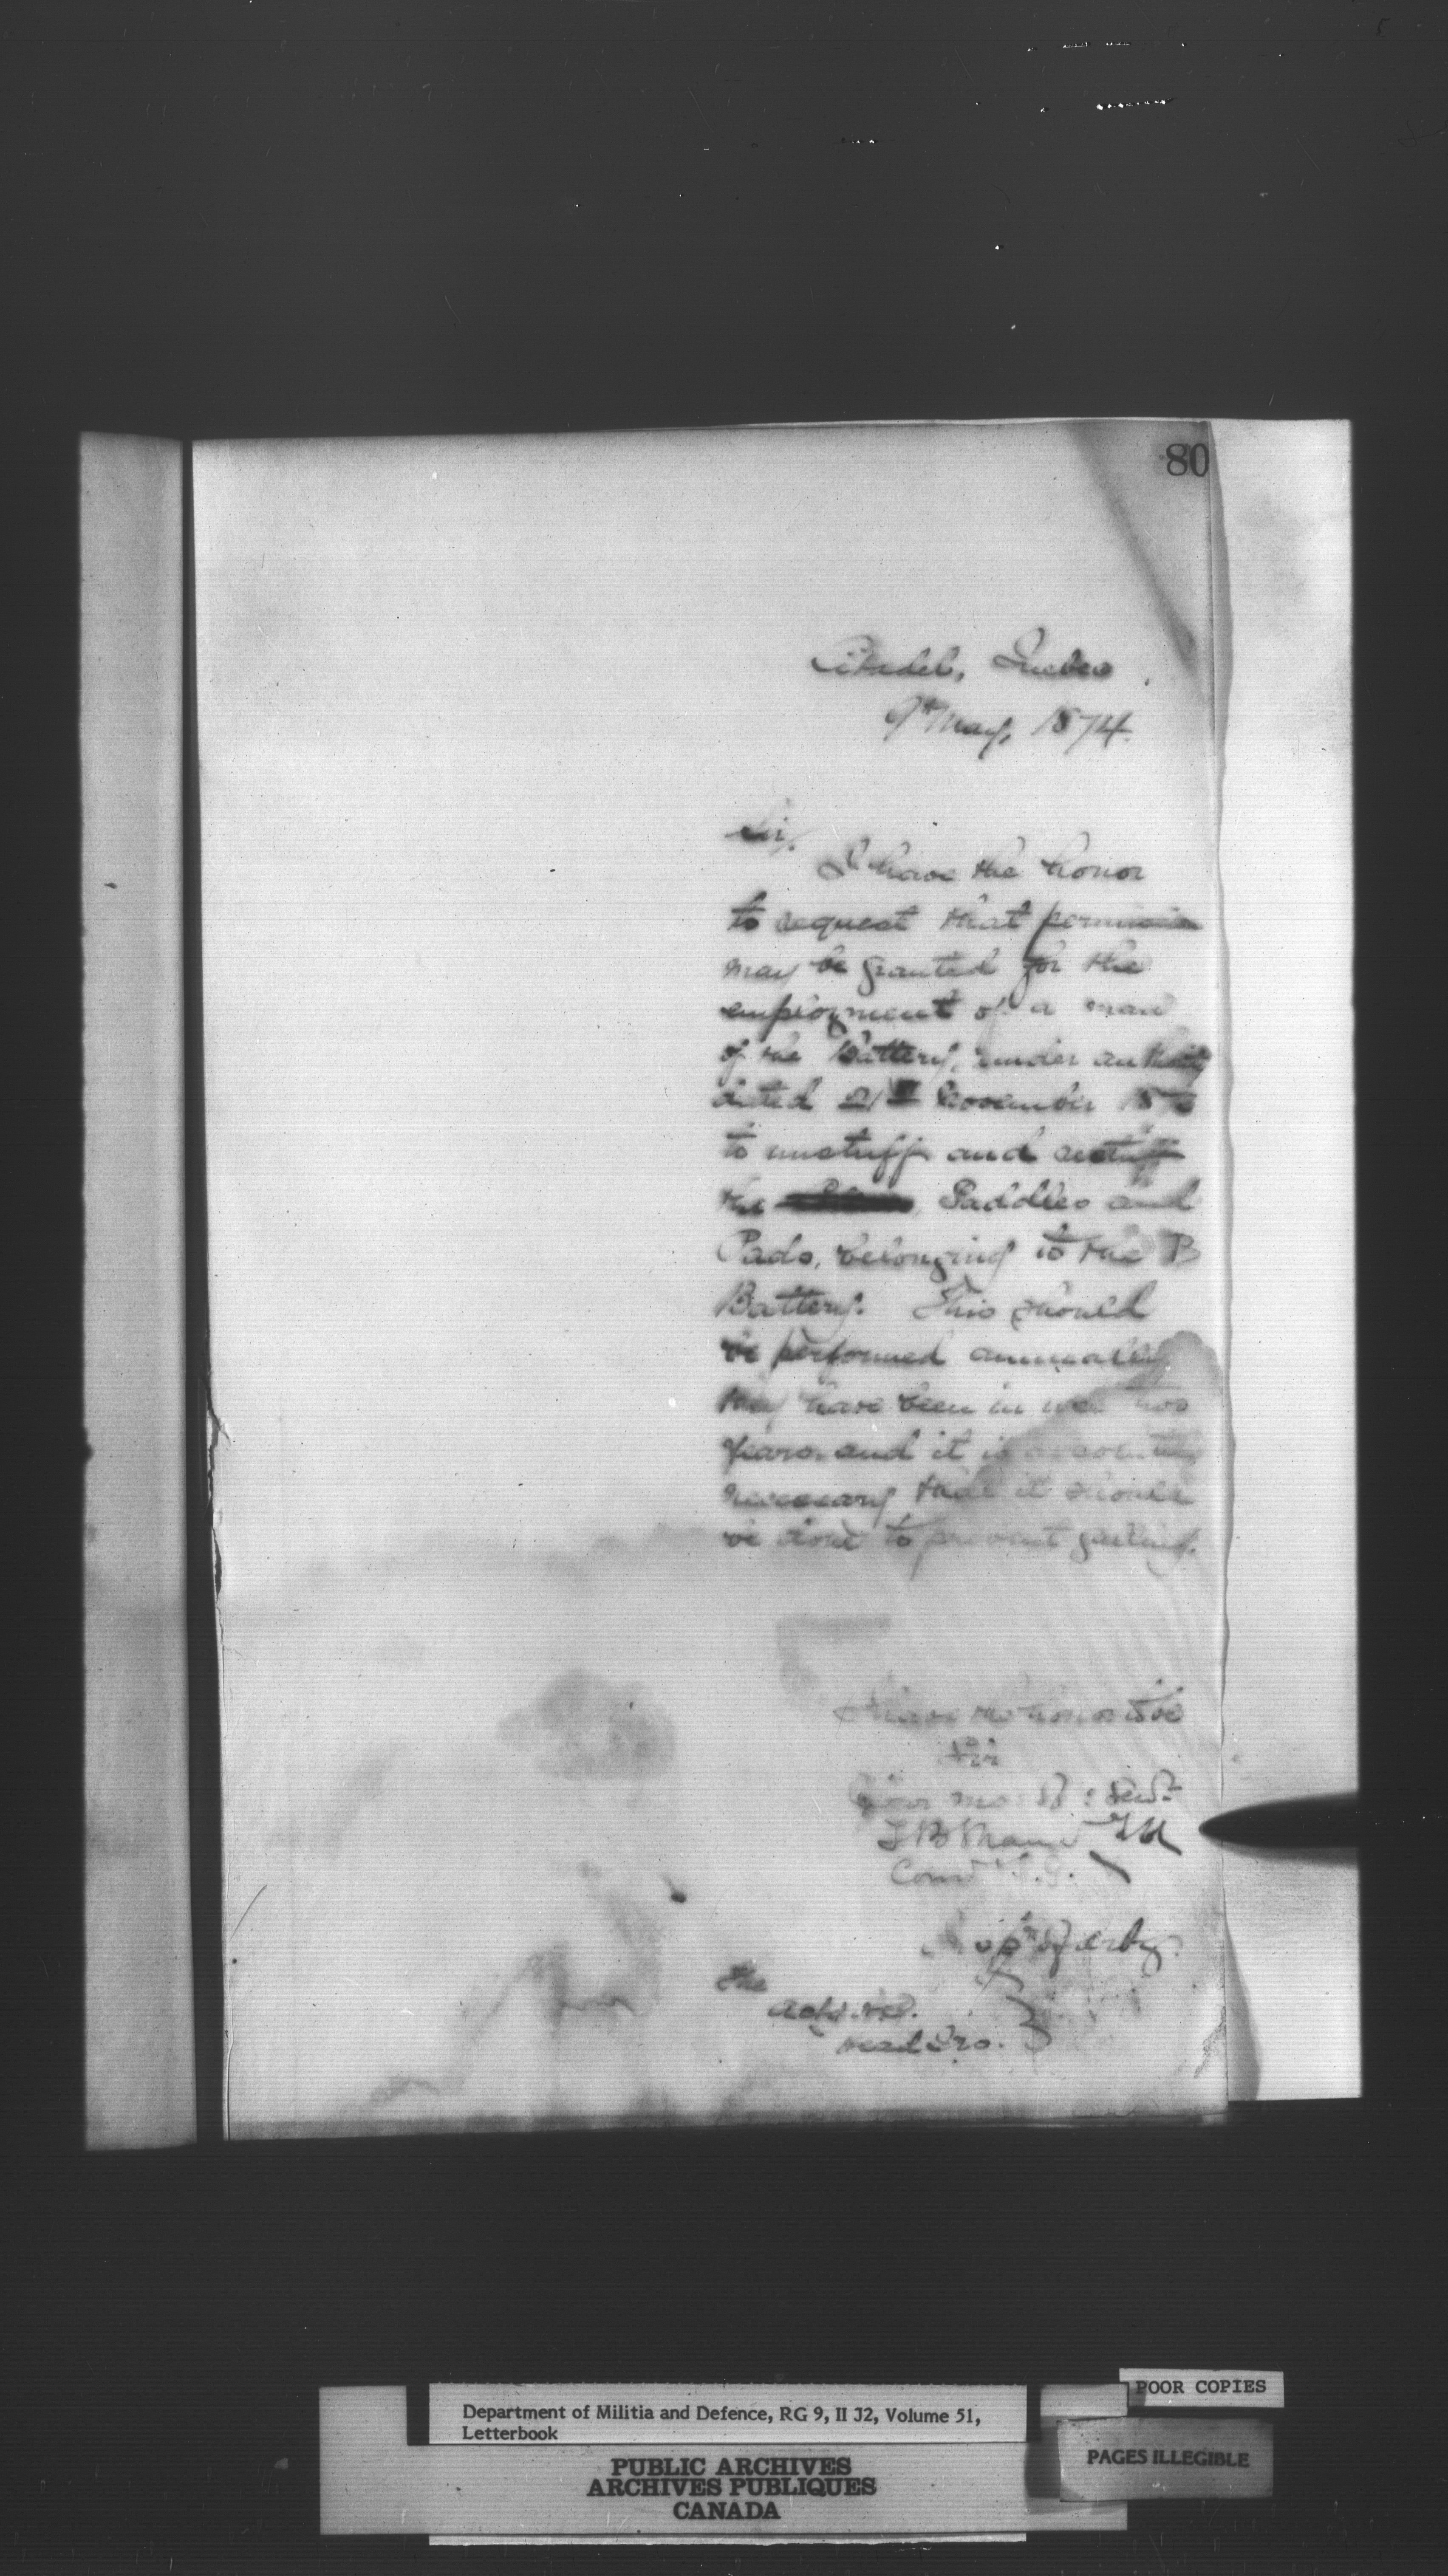 80
Citadel, Quebec
9th May, 1874.
Sir,
I have the honor
to request that permission
may be granted for the
employment of a man
of the Battery, under authority
dated 21st November 187
to unstuff and restuff
the Saddles and
Pads, belonging to the B
Battery. This should
be performed annually
they have been in use two
years and it is absolutely
necessary that it should
be done to prevent galling.
I have the honor to be
Sir
Your mo: Ob: Serv:
T B Strange
Comdt S.G.
Insp of Arty.
The
Head Qrs.
Department of Militia and Defence, RG 9, II J2, Volume 51,
Letterbook
PUBLIC ARCHIVES
ARCHIVES PUBLIQUES
CANADA
POOR COPIES
PAGES ILLEGIBLE